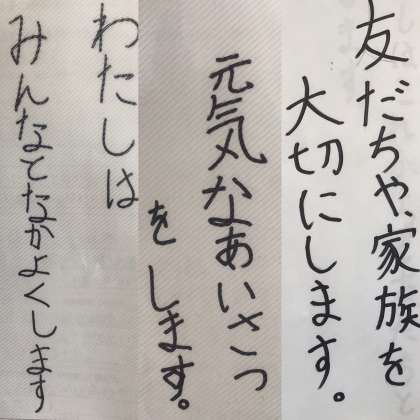 友だちや、家族を
大切にします。
元気なあいさつ
をします。
わたしは
みんなとなかよくします